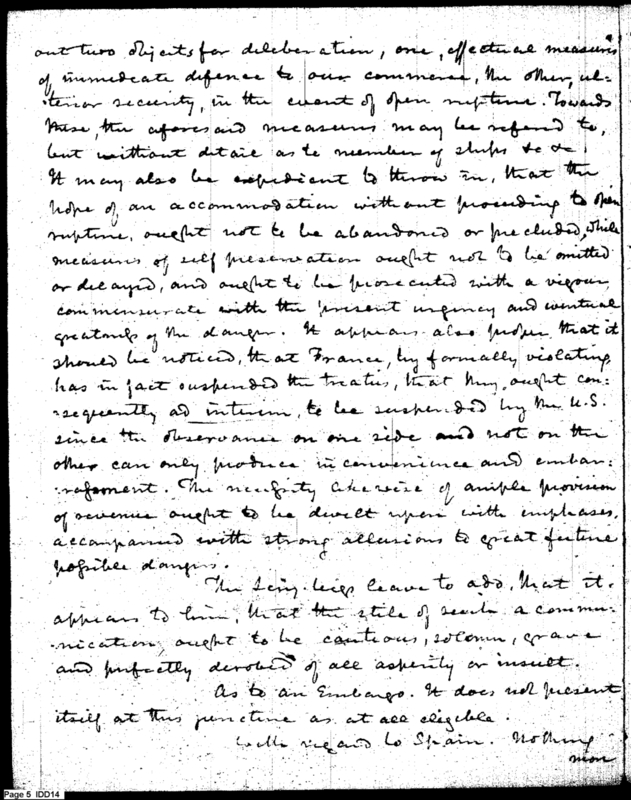 out two objects for deliberation, one, effectual measures
of immediate defence to our commerce, the other, ul=
terior security, in the event of open rupture. Towards
these, the aforesaid measures may be refered to,
but without detail as to number of ships &c &c
It may also be expedient to throw in, that the
hope of an accommodation without proceeding to open
rupture, ought not to be abandoned or precluded, while
measures of self preservation ought not to be omitted
or delayed, and ought to be prosecuted with a vigour
commensurate with the present urgency and eventual
greatness of the danger. It appears also proper that it
should be noticed, that France, by formally violating
has in fact suspended the treaties, that they, ought con=
sequently ad interim, to be suspended by the U.S.
since the observance on one side and not on the
other can only produce inconvenience and embar=
rassment. The necessity likewise of ample provision
of revenue ought to be dwelt upon with emphases,
accompanied with strong allusions to great future
possible dangers.
The Secy. begs leave to add, that it
appears to him, that the stile of such a commu=
nication, ought to be cautious, solemn, grave
and perfectly devoid of all asperity or insult.
As to an Embargo. It does not present
itself at this juncture as at all eligible.
With regard to Spain. Nothing
more
Page 5 IDD14